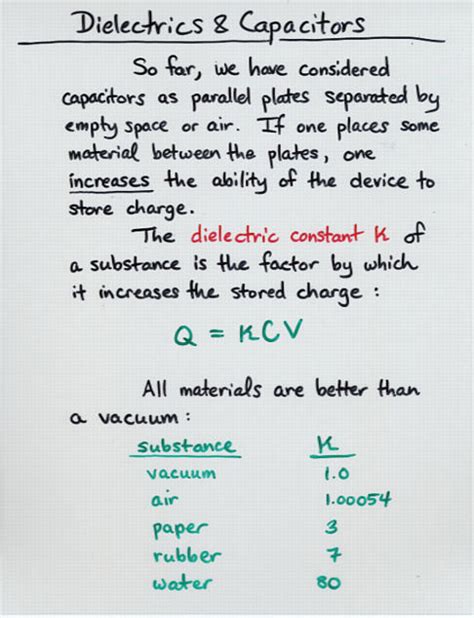 Dielectrics & Capacitors
So far, we have considered
capacitors as parallel plates separated by
empty space or air. If one places some
material between the plates, one
increases the ability of the device to
store charge.
The dielectric constant K of
a substance is the factor by which
it increases the stored charge :
Q = KCV
All materials are better than
a vacuum :
substance K
vacuum 1.0
air 1.00054
paper 3
rubber 7
water 80